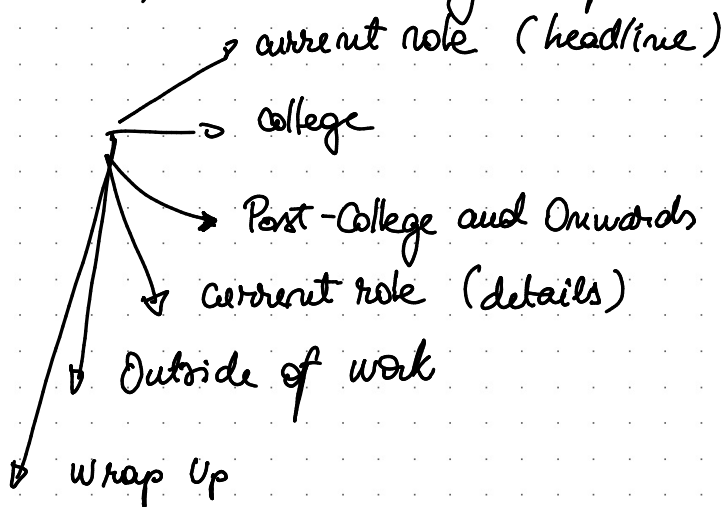 current role (headline)
College
Post-College and Onwards
current role (details)
Outside of work
Wrap Up